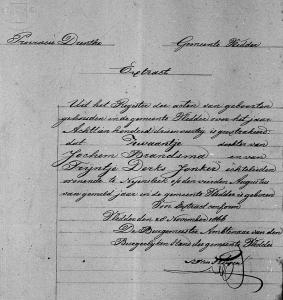 Provincie Drenthe Gemeente Vledder
Extract
Uit het Register der acten van geboorten
gehouden in de gemeente Vledder over het jaar
Achttien honderd drie en veertig is geextraheerd:
dat Zwaantje dochter van
Jochem Brandsma en van
Trijntje Derks Jonker echtelieden
wonende te Nijensleek op den vierden Augustus
van gemeld jaar in de gemeente Vledder is geboren
Voor Extract conform
Vledder den 20 November 1866
De Burgemeester Ambtenaar van den
Burgerlijken Stand des gemeente Vledder